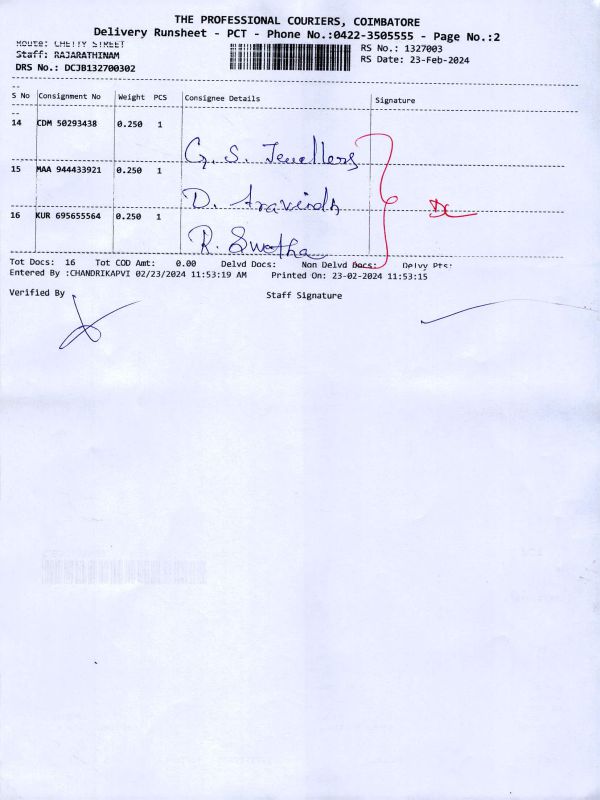 THE PROFESSIONAL COURIERS, COIMBATORE
Delivery Runsheet - PCT - Phone No.:0422-3505555 - Page No.:2
Route: CHETTY STREET
RS No.: 1327003
Staff: RAJARATHINAM
RS Date: 23-Feb-2024
DRS No.: DCJB132700302
S No Consignment No Weight PCS Consignee Details Signature
14 CDM 50293438 0.250 1
G. S. Jewellers
15 MAA 944433921 0.250 1
D. Aravindh
16 KUR 695655564 0.250 1
R. Swetha
Tot Docs: 16 Tot COD Amt: 0.00 Delvd Docs: Non Delvd Docs: Delvy Pts:
Entered By :CHANDRIKAPVI 02/23/2024 11:53:19 AM Printed On: 23-02-2024 11:53:15
Verified By Staff Signature